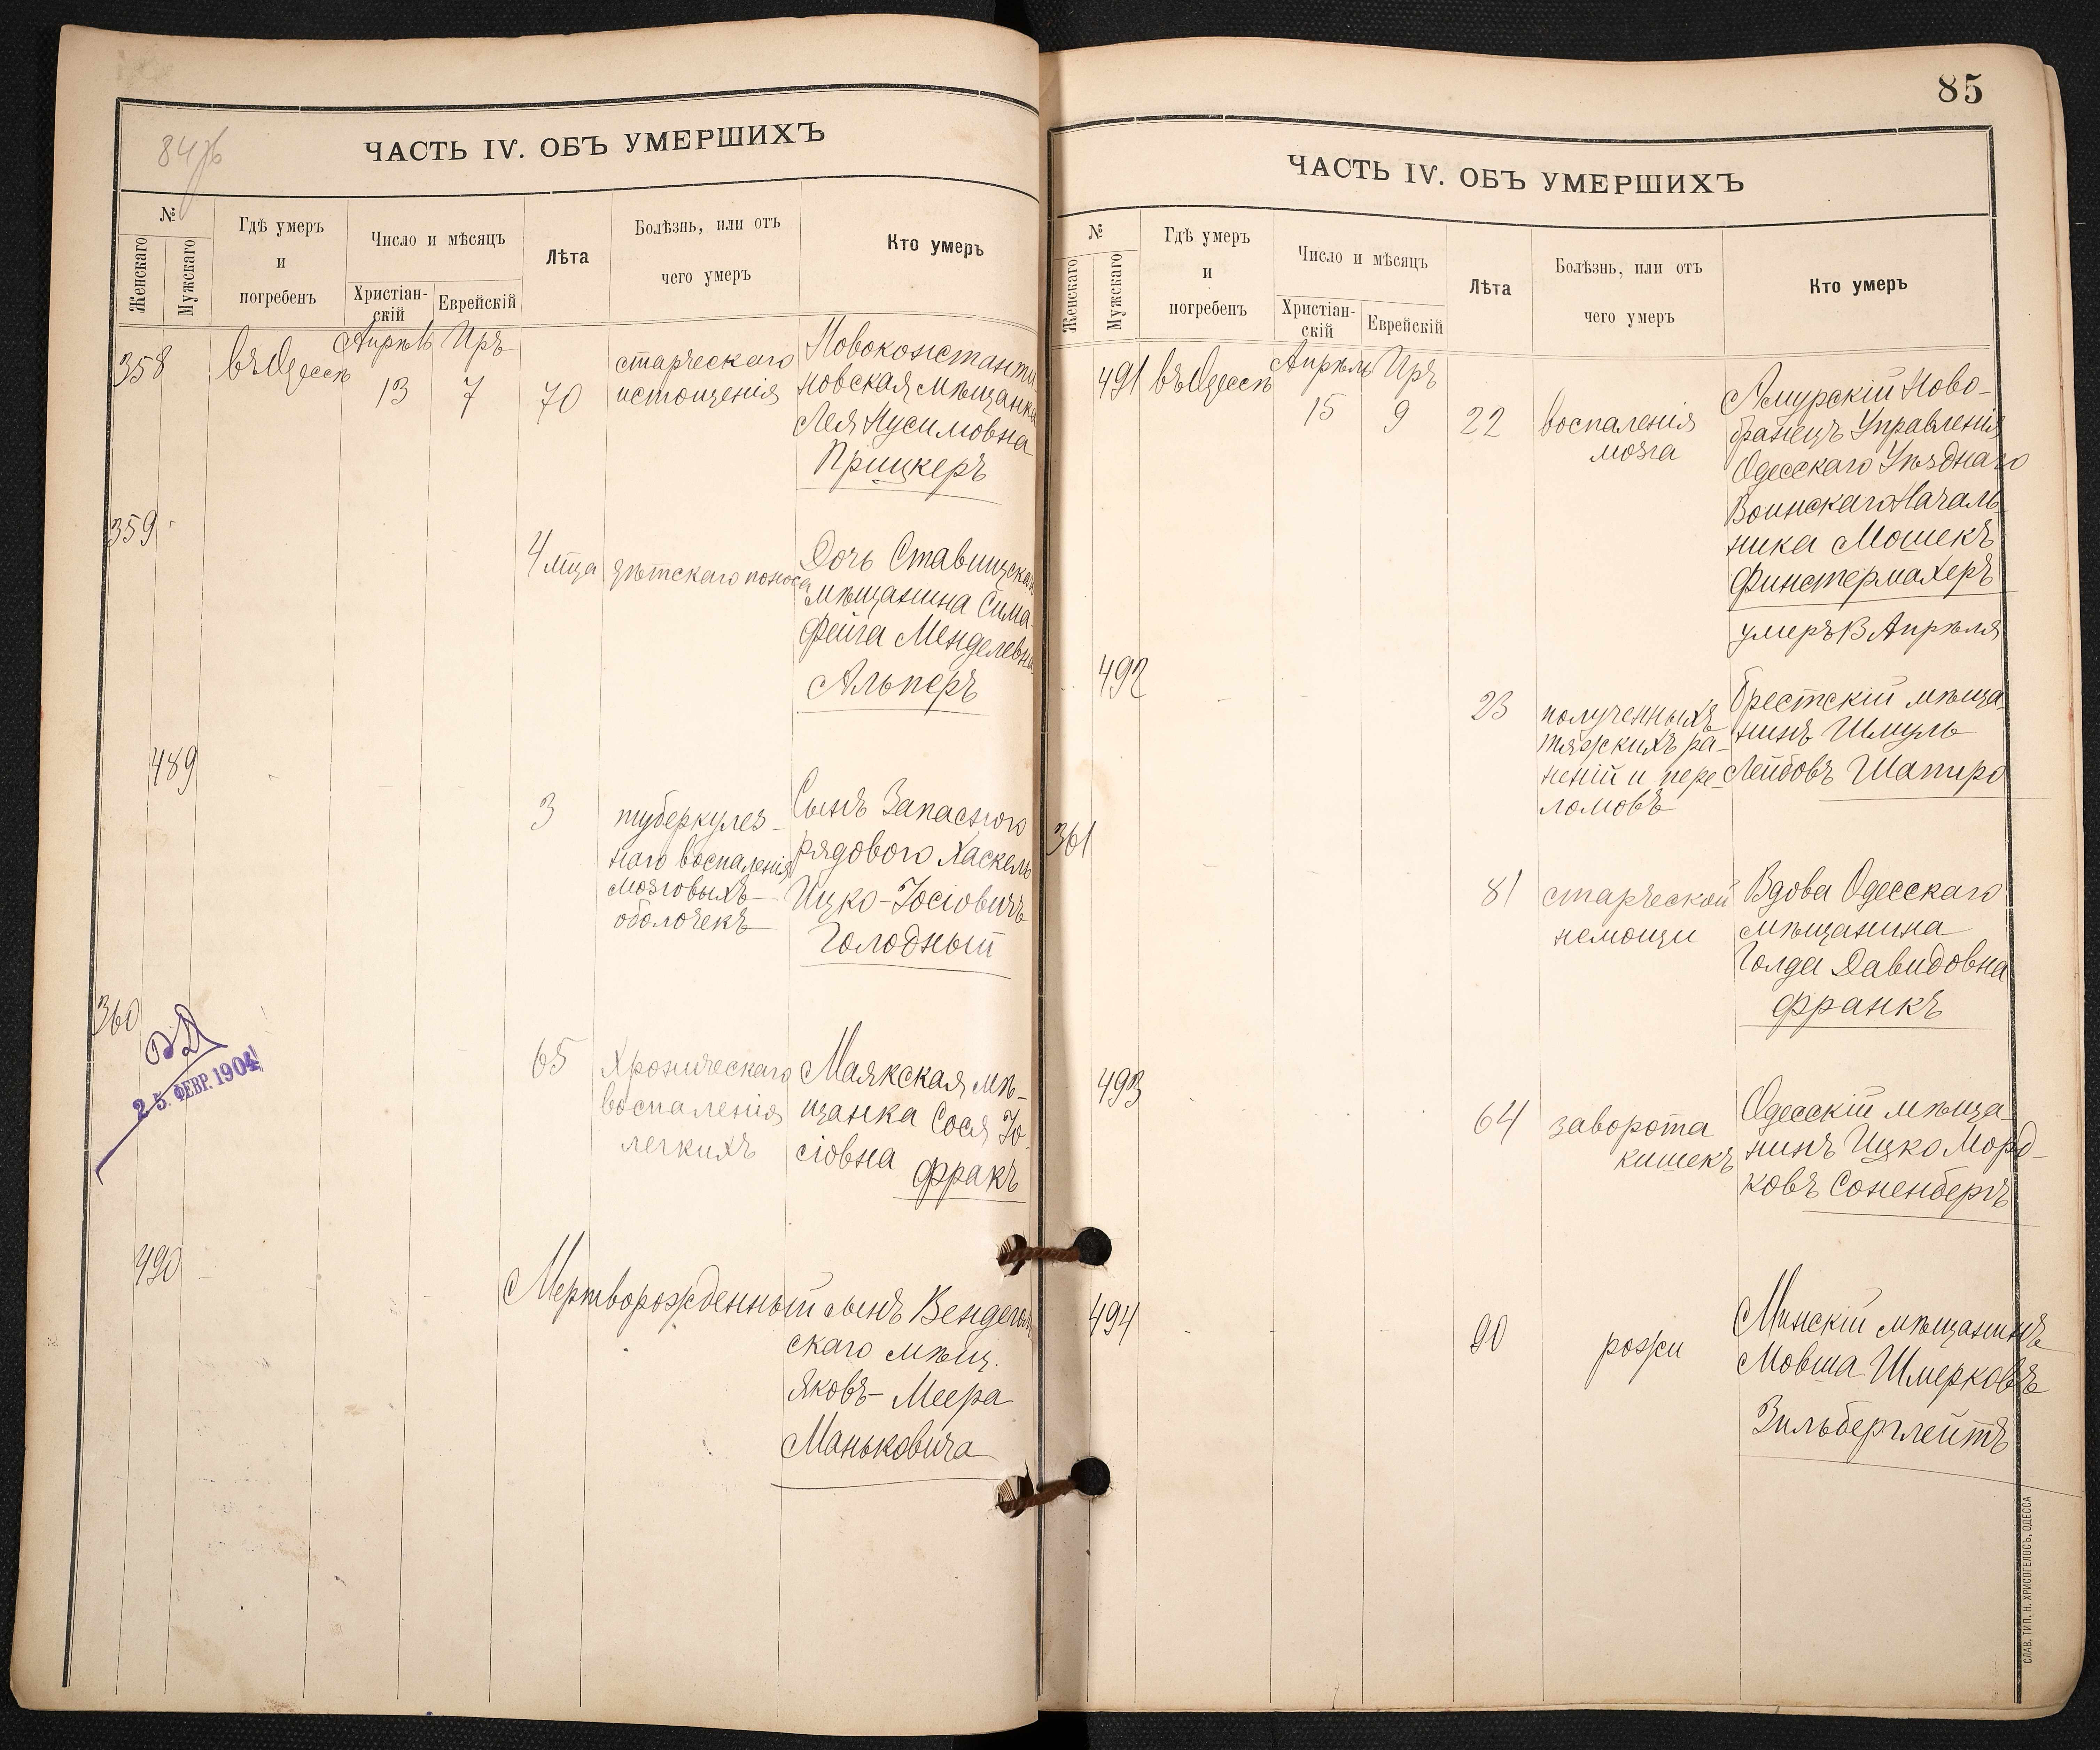 84 об
ЧАСТЬ IV. ОБЪ УМЕРШИХЪ
№
Женскаго
Мужскаго
Гдѣ умеръ
и
погребенъ
Число и мѣсяцъ
Христіан-
скій
Еврейскій
Лѣта
Болѣзнь, или отъ
чего умеръ
Кто умеръ
358
въ Одессѣ
Апрѣль
13
Иръ
7
70
старческаго
истощенія
Новоконстанти
новская мѣщанка
Лея Нусимовна
Прицкеръ
359
4 мца
дѣтскаго поноса
Дочь Ставищскаго
мѣщанина Сима-
Фейга Менделевна
Альперъ
489
3
туберкулез-
наго воспаленія
мозговыхъ
оболочекъ
Сынъ Запасного
рядового Хаскель
Ицко-Іосіовичъ
Голодный
360
25. ФЕВР. 1904
65
Хроническаго
воспаленія
легкихъ
Маякская мѣ-
щанка Сося Іо-
сіовна
Фракъ
490
Мертворожденный сынъ
скаго мѣщ.
Яковъ-Меера
Маньковича
85
ЧАСТЬ IV. ОБЪ УМЕРШИХЪ
№
Женскаго
Мужскаго
Гдѣ умеръ
и
погребенъ
Число и мѣсяцъ
Христіан-
скій
Еврейскій
Лѣта
Болѣзнь, или отъ
чего умеръ
Кто умеръ
491
въ Одессѣ
Апрѣль
15
Иръ
9
22
воспаленія
мозга
Амурскій Ново-
бранецъ Управленія
Одесскаго Уѣзднаго
Воинскаго Началь-
ника Мошекъ
Финстермахеръ
умеръ 13 Апрѣля
492
23
полученныхъ
тяжкихъ ра-
неній и пере-
ломовъ
Брестскій мѣща-
нинъ Шмуль
Лейбовъ Шапиро
361
81
старческой
немощи
Вдова Одесскаго
мѣщанина
Голда Давидовна
Франкъ
493
64
заворота
кишекъ
Одесскій мѣща-
нинъ Ицко Морд-
ковъ Соненбергъ
494
90
рожи
Минскій мѣщанинъ
Мовша Шмерковъ
Зильберглейтъ
СЛАВ. ТИП. Н. ХРИСОГЕЛОСЪ, ОДЕССА